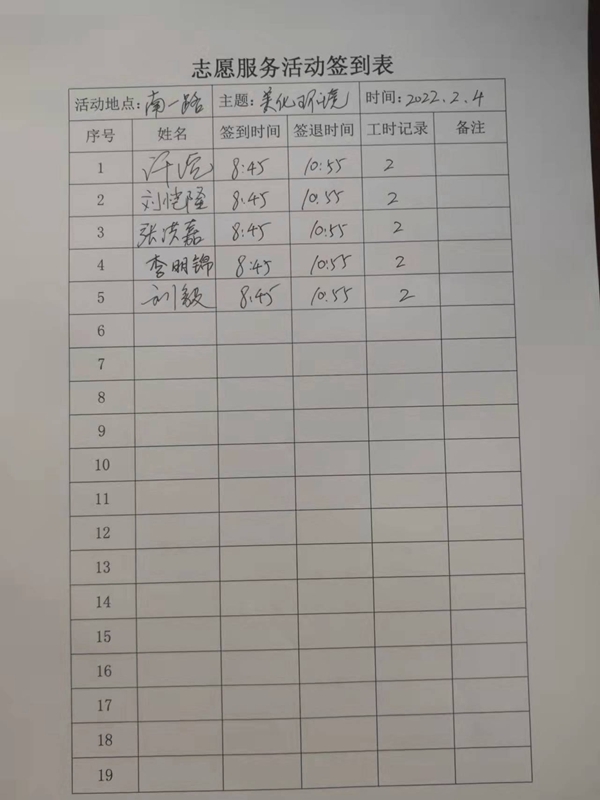 志愿服务活动签到表
活动地点:南一路 主题:美化环境 时间:2022.2.4
序号 姓名 签到时间 签退时间 工时记录 备注
1 8:45 10:55 2
2 刘恺隆 8:45 10:55 2
3 张洪嘉 8:45 10:55 2
4 李明锦 8:45 10:55 2
5 刘毅 8:45 10:55 2
6
7
8
9
10
11
12
13
14
15
16
17
18
19